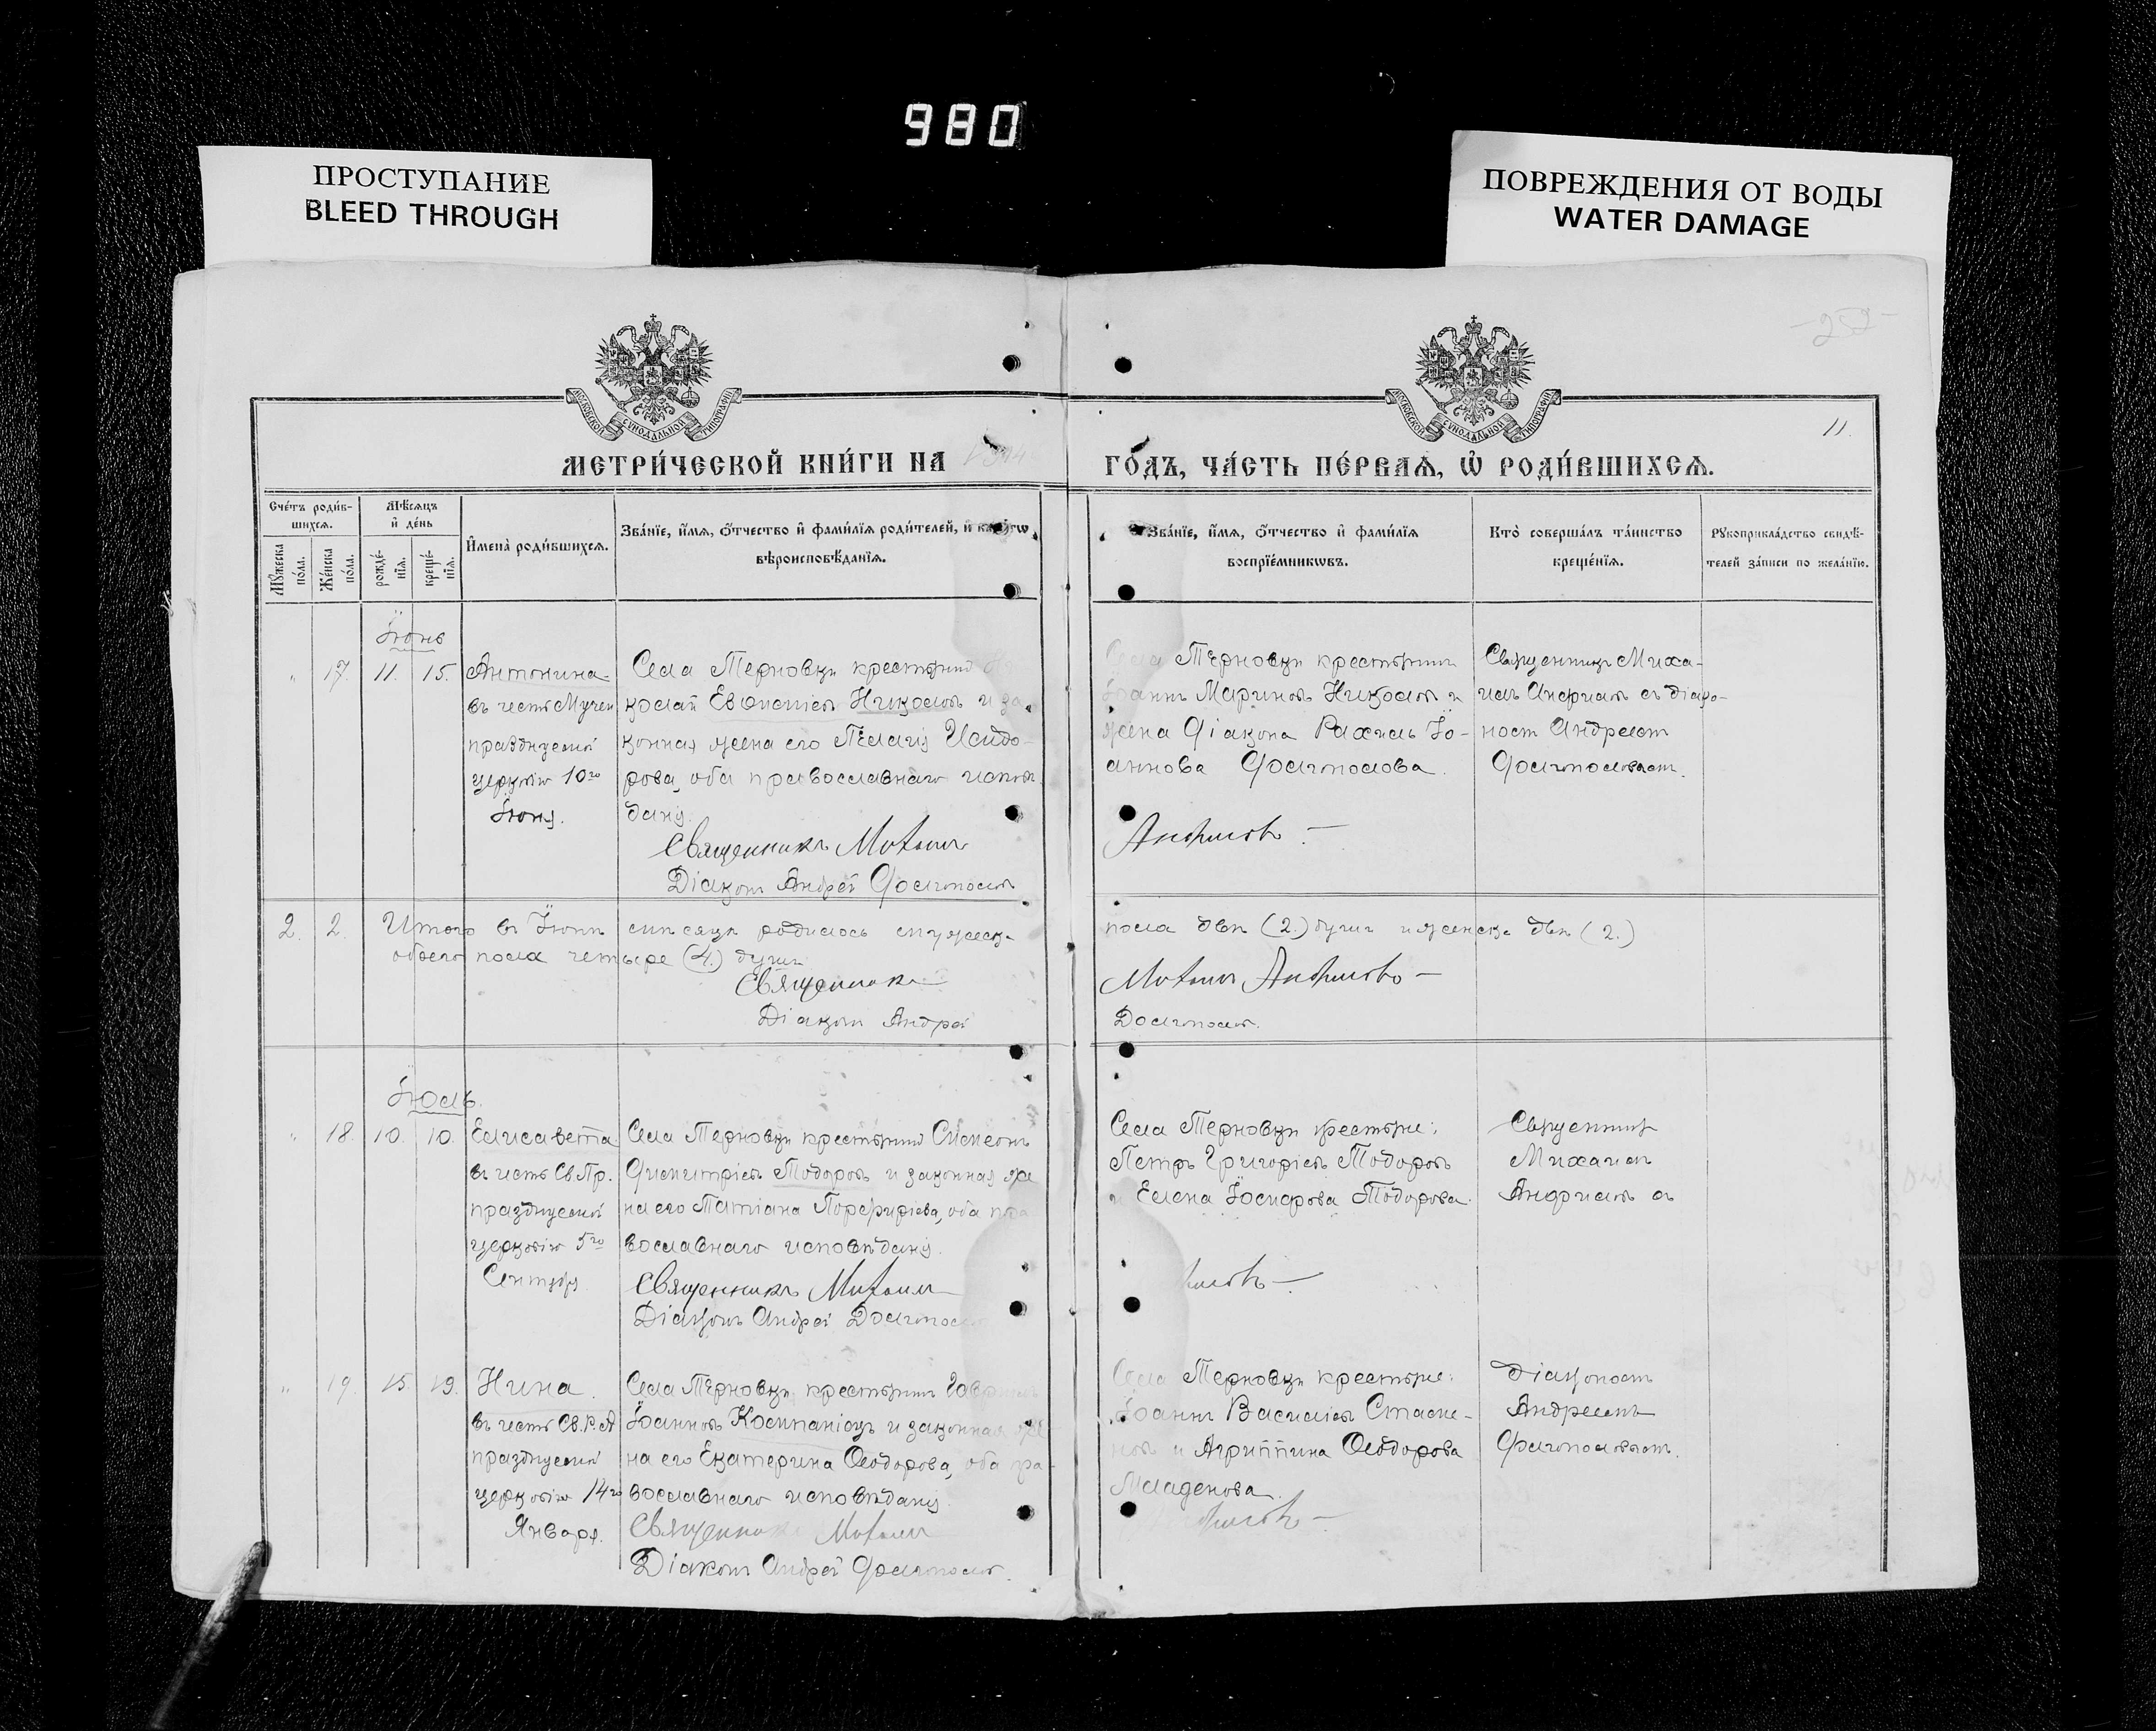 980
ПРОСТУПАНИЕ
BLEED THROUGH
ПОВРЕЖДЕНИЯ ОТ ВОДЫ
WATER DAMAGE
МОСКОВСКОЙ СѴНОДАЛЬНОЙ ТИПОГРАФІИ
МОСКОВСКОЙ СѴНОДАЛЬНОЙ ТИПОГРАФІИ
11.
МЕТРИ́ЧЕСКОЙ КНИ́ГИ НА
ГО́ДЪ, ЧА́СТЬ ПЕ́РВАѦ, Ѡ҆ РОДИ́ВШИХСѦ.
Сче́тъ роди́в-
шихсѧ.
Мꙋ́жеска по́ла.
Же́нска по́ла.
Мѣ́сѧцъ
и҆ де́нь
рожде́-
нїѧ.
креще́-
нїѧ.
И҆мена̀ роди́вшихсѧ.
Зва́нїе, и҆́мѧ, ѻ҆́тчество и҆ фами́лїѧ роди́телей, и҆
вѣроисповѣ́данїѧ.
Зва́нїе, и҆́мѧ, ѻ҆́тчество и҆ фами́лїѧ
воспрїе́мникѡвъ.
Кто̀ соверша́лъ та́инство
креще́нїѧ.
Рꙋкоприкла́дство свидѣ́-
телей за́писи по жела́нїю.
Іюнь
17. 11. 15.
Антонина
въ честь Мучен
празднуемой
церковію 10го
Іюня.
Села Терновки крестьянинъ Ни
колай Евѳиміевъ Николовъ и за
конная жена его Пелагія Исидо-
рова, оба православнаго испов
данія.
Священникъ Михаилъ
Діаконъ Андрей Долгополовъ
Села Терновки крестьянинъ
Іоаннъ Мариновъ Николовъ и
жена Діакона Рахиль Іо-
аннова Долгополова.
Андріевъ
Священникъ Миха-
илъ Андріевъ съ діако-
номъ Андреемъ
Долгополовымъ.
2. 2. Итого въ Іюнѣ мѣсяцѣ родилось мужеска
пола двѣ (2.) души и женска двѣ (2.)
обоего пола четыре (4.) души
Священникъ
Михаилъ Андріевъ
Діаконъ Андрей
Долгополовъ.
Іюль.
18. 10. 10.
Елисавета
въ честь Св. Пр.
празднуемой
церковію 5го
Сентября
Села Терновки крестьянинъ Симеонъ
Димитріевъ Тодоровъ и законная же
на его Татіана Порфиріева, оба пра
вославнаго исповѣданія.
Священникъ Михаилъ
Діаконъ Андрей
Села Терновки крестьяне:
Петръ Григоріевъ Тодоровъ
и Елена Іосифова Тодорова.
Священникъ
Михаилъ
Андріевъ съ
19. 15. 19.
Нина.
въ честь Св. Р. А
празднуемой
церковію 14го
Января.
Села Терновки крестьянинъ Гавріилъ
Іоанновъ Компаніецъ и законная же
на его Екатерина Ѳеодорова, оба пра-
вославнаго исповѣданія
Священникъ Михаилъ
Діаконъ Андрей Долгополовъ.
Села Терновки крестьяне:
Іоаннъ Василіевъ Стаме-
новъ и Агриппина Ѳеодорова
Младенова.
Діакономъ
Андреемъ
Долгополовымъ.